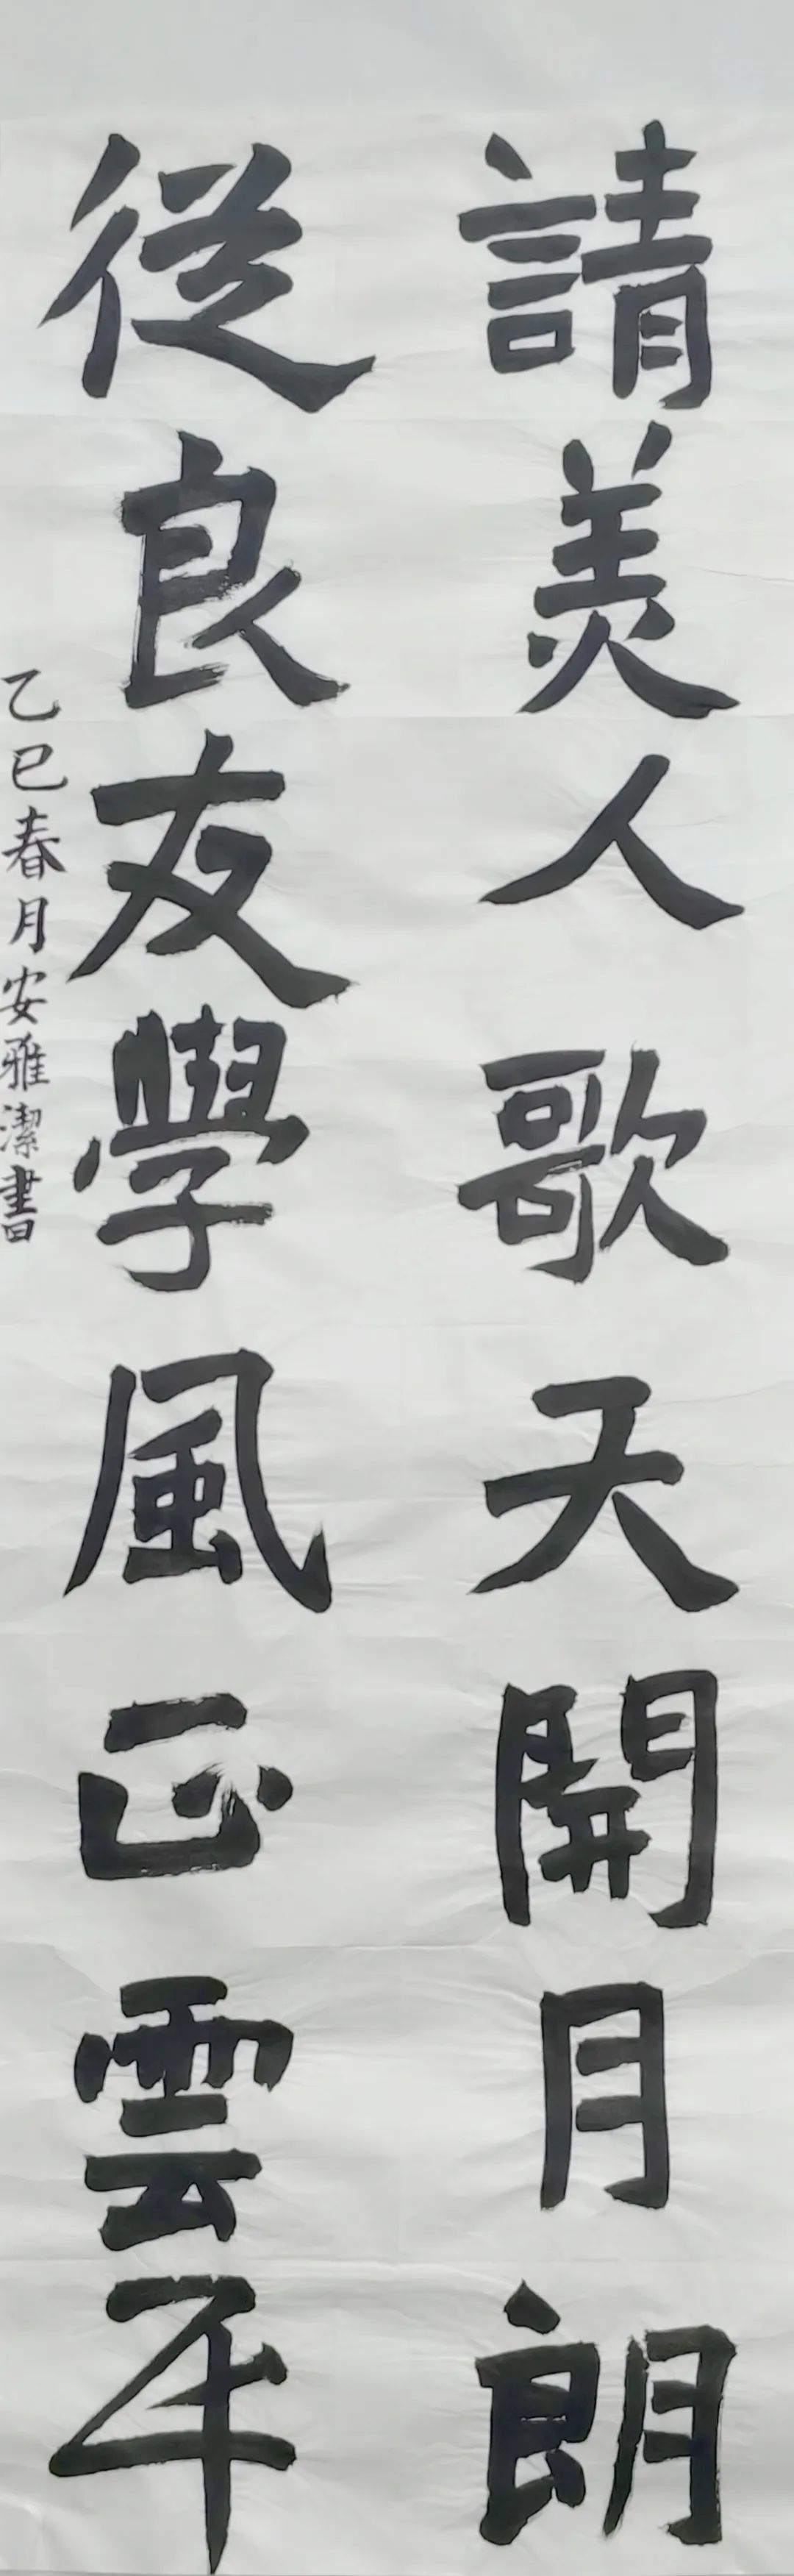 請美人歌天開月朗
從良友學風正雲平
乙巳春月安雅潔書